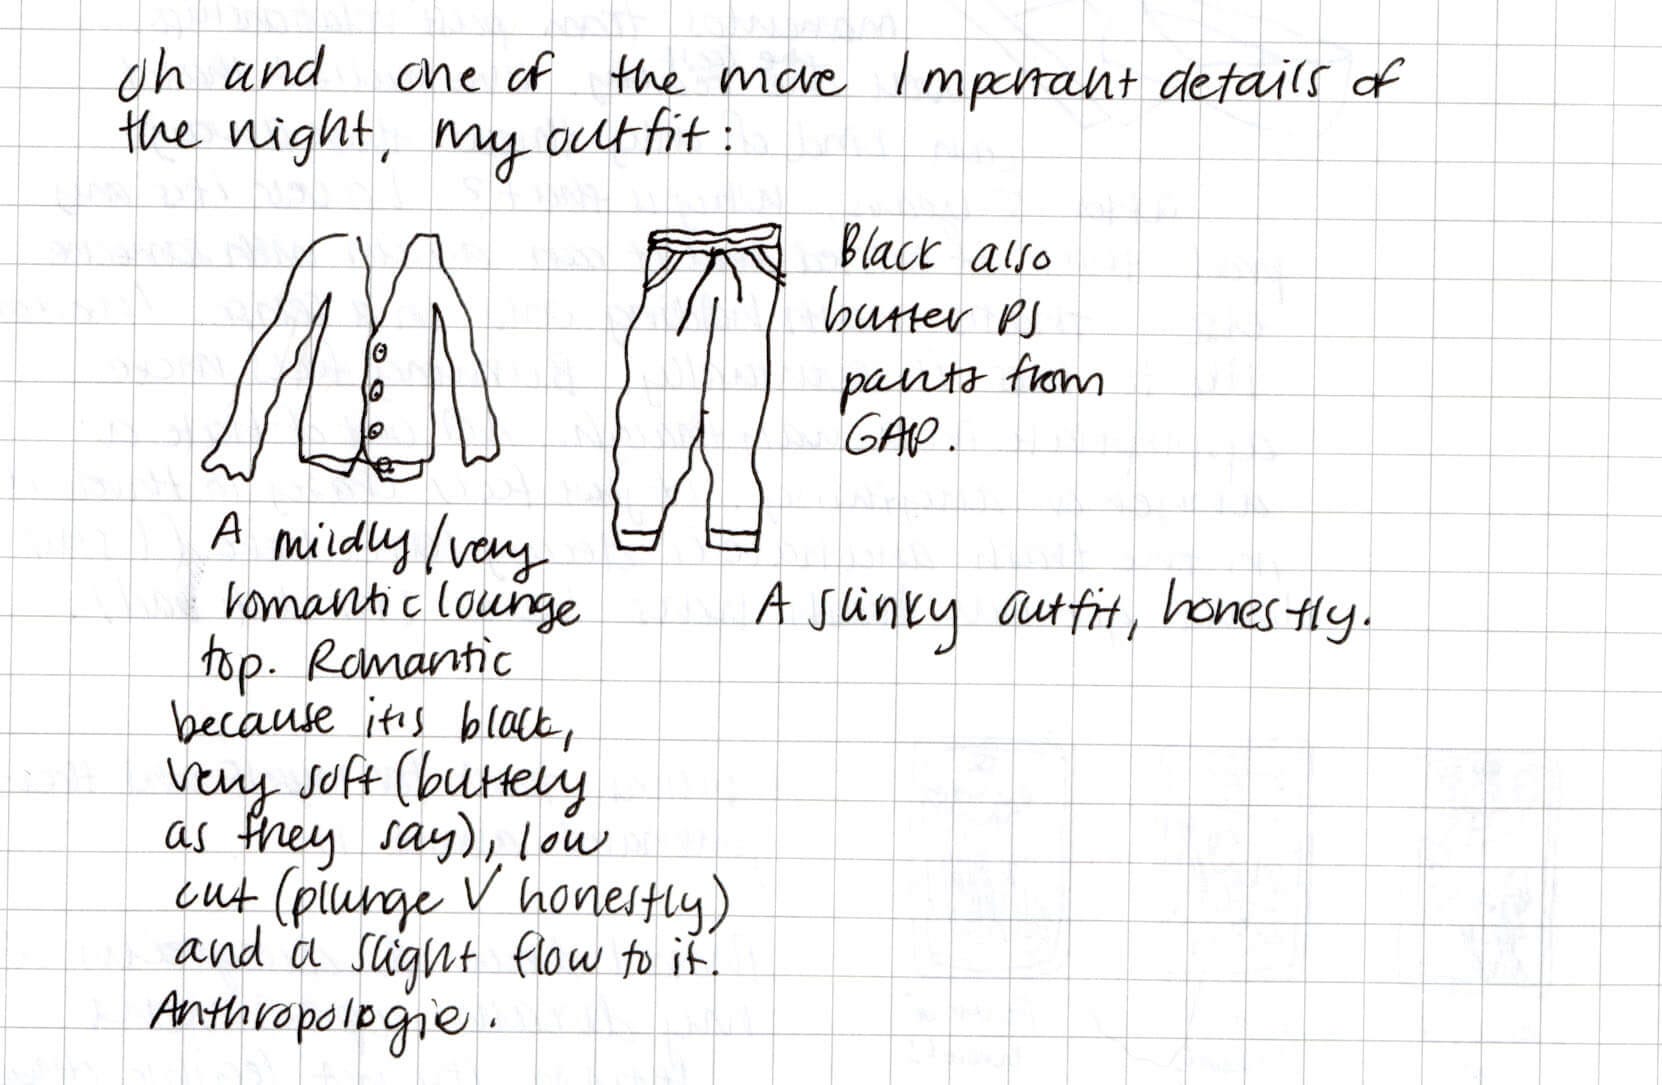 Oh and one of the more Important details of
the night, my outfit:
Black also
butter PJ
pants from
GAP.
A mildly/very
romantic lounge
top. Romantic
because it's black,
very soft (buttery
as they say), low
cut (plunge V honestly)
and a slight flow to it.
Anthropologie.
A slinky outfit, honestly.